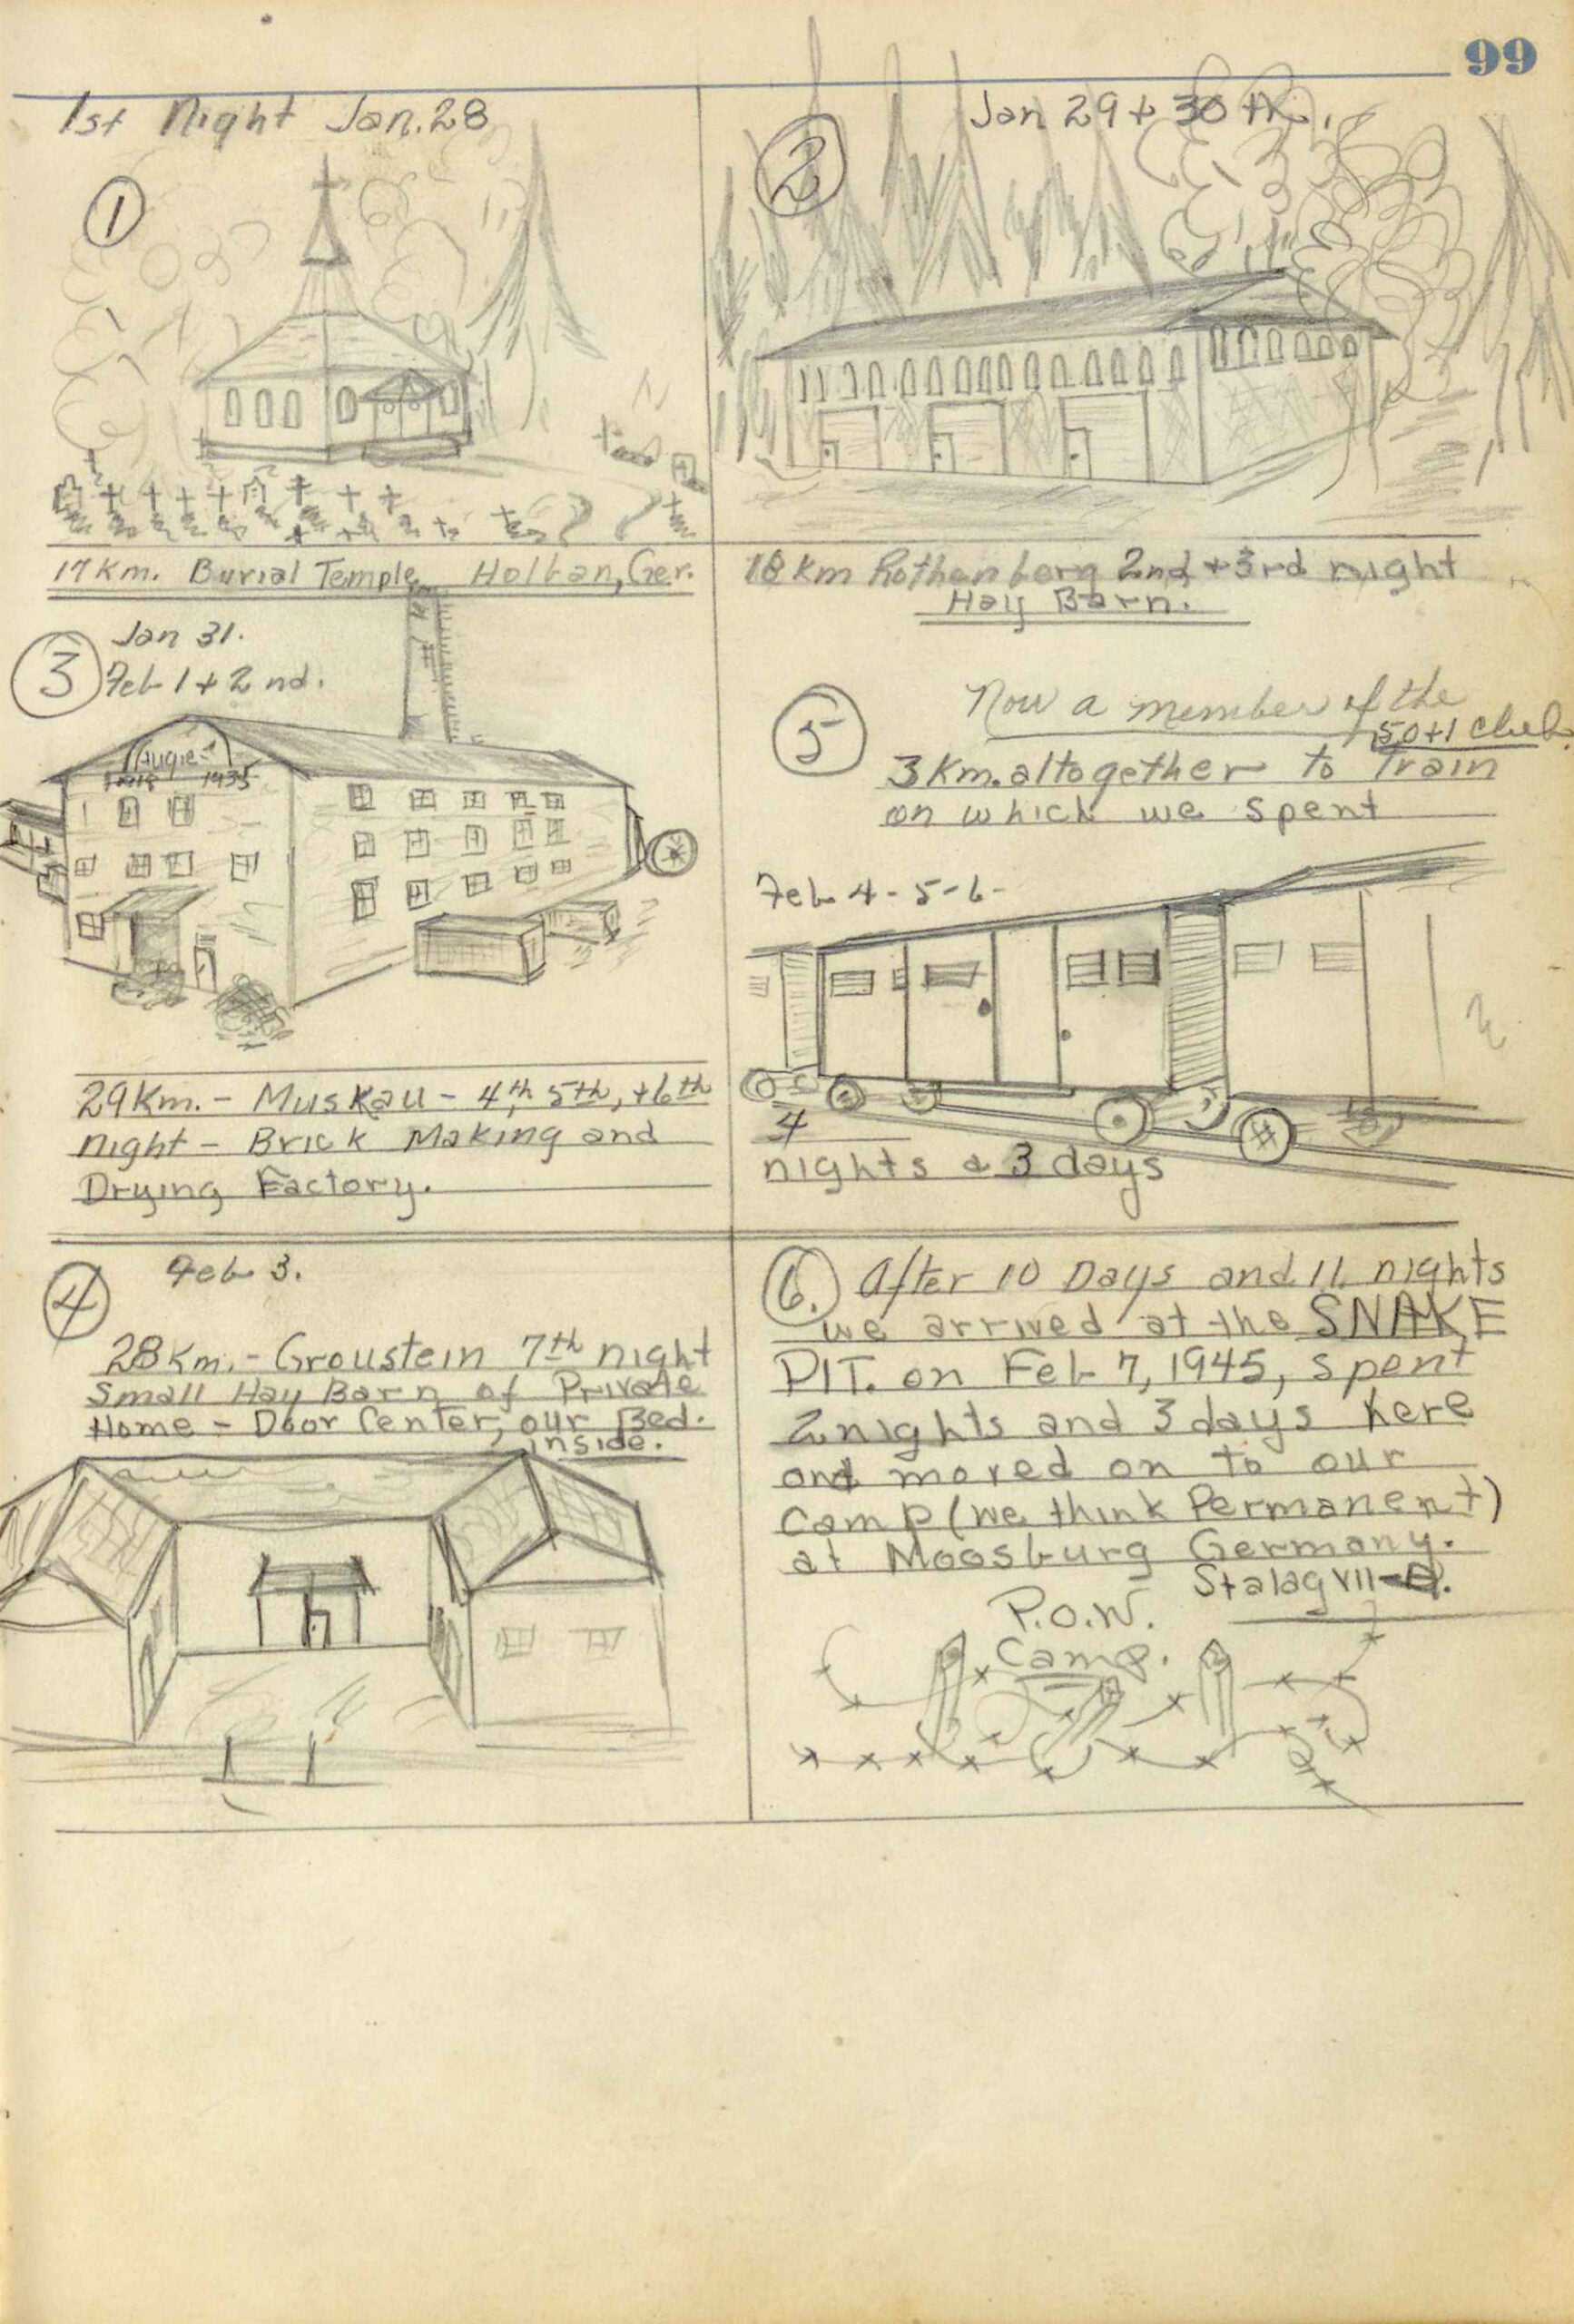 99
1st Night Jan. 28
1
17 Km. Burial Temple Holban, Ger.
Jan 29 + 30 th.
2
18 Km Rothenberg 2nd + 3rd night
Hay Barn.
Jan 31.
3 Feb 1 + 2 nd.
Augie
1935
29 Km. - Muskau - 4th, 5th, + 6th
night - Brick Making and
Drying Factory.
4
Feb 3.
28 Km. - Groustein 7th night
Small Hay Barn of Private
Home - Door Center, our Bed.
inside.
5
Now a member of the
50+1 club.
3 Km. altogether to Train
on which we spent
Feb 4 - 5 - 6 -
4
nights & 3 days
6. After 10 Days and 11 nights
we arrived at the SNAKE
PIT. on Feb 7, 1945, spent
2 nights and 3 days here
and moved on to our
Camp (we think Permanent)
at Moosburg Germany.
Stalag VII
P.O.W.
Camp.